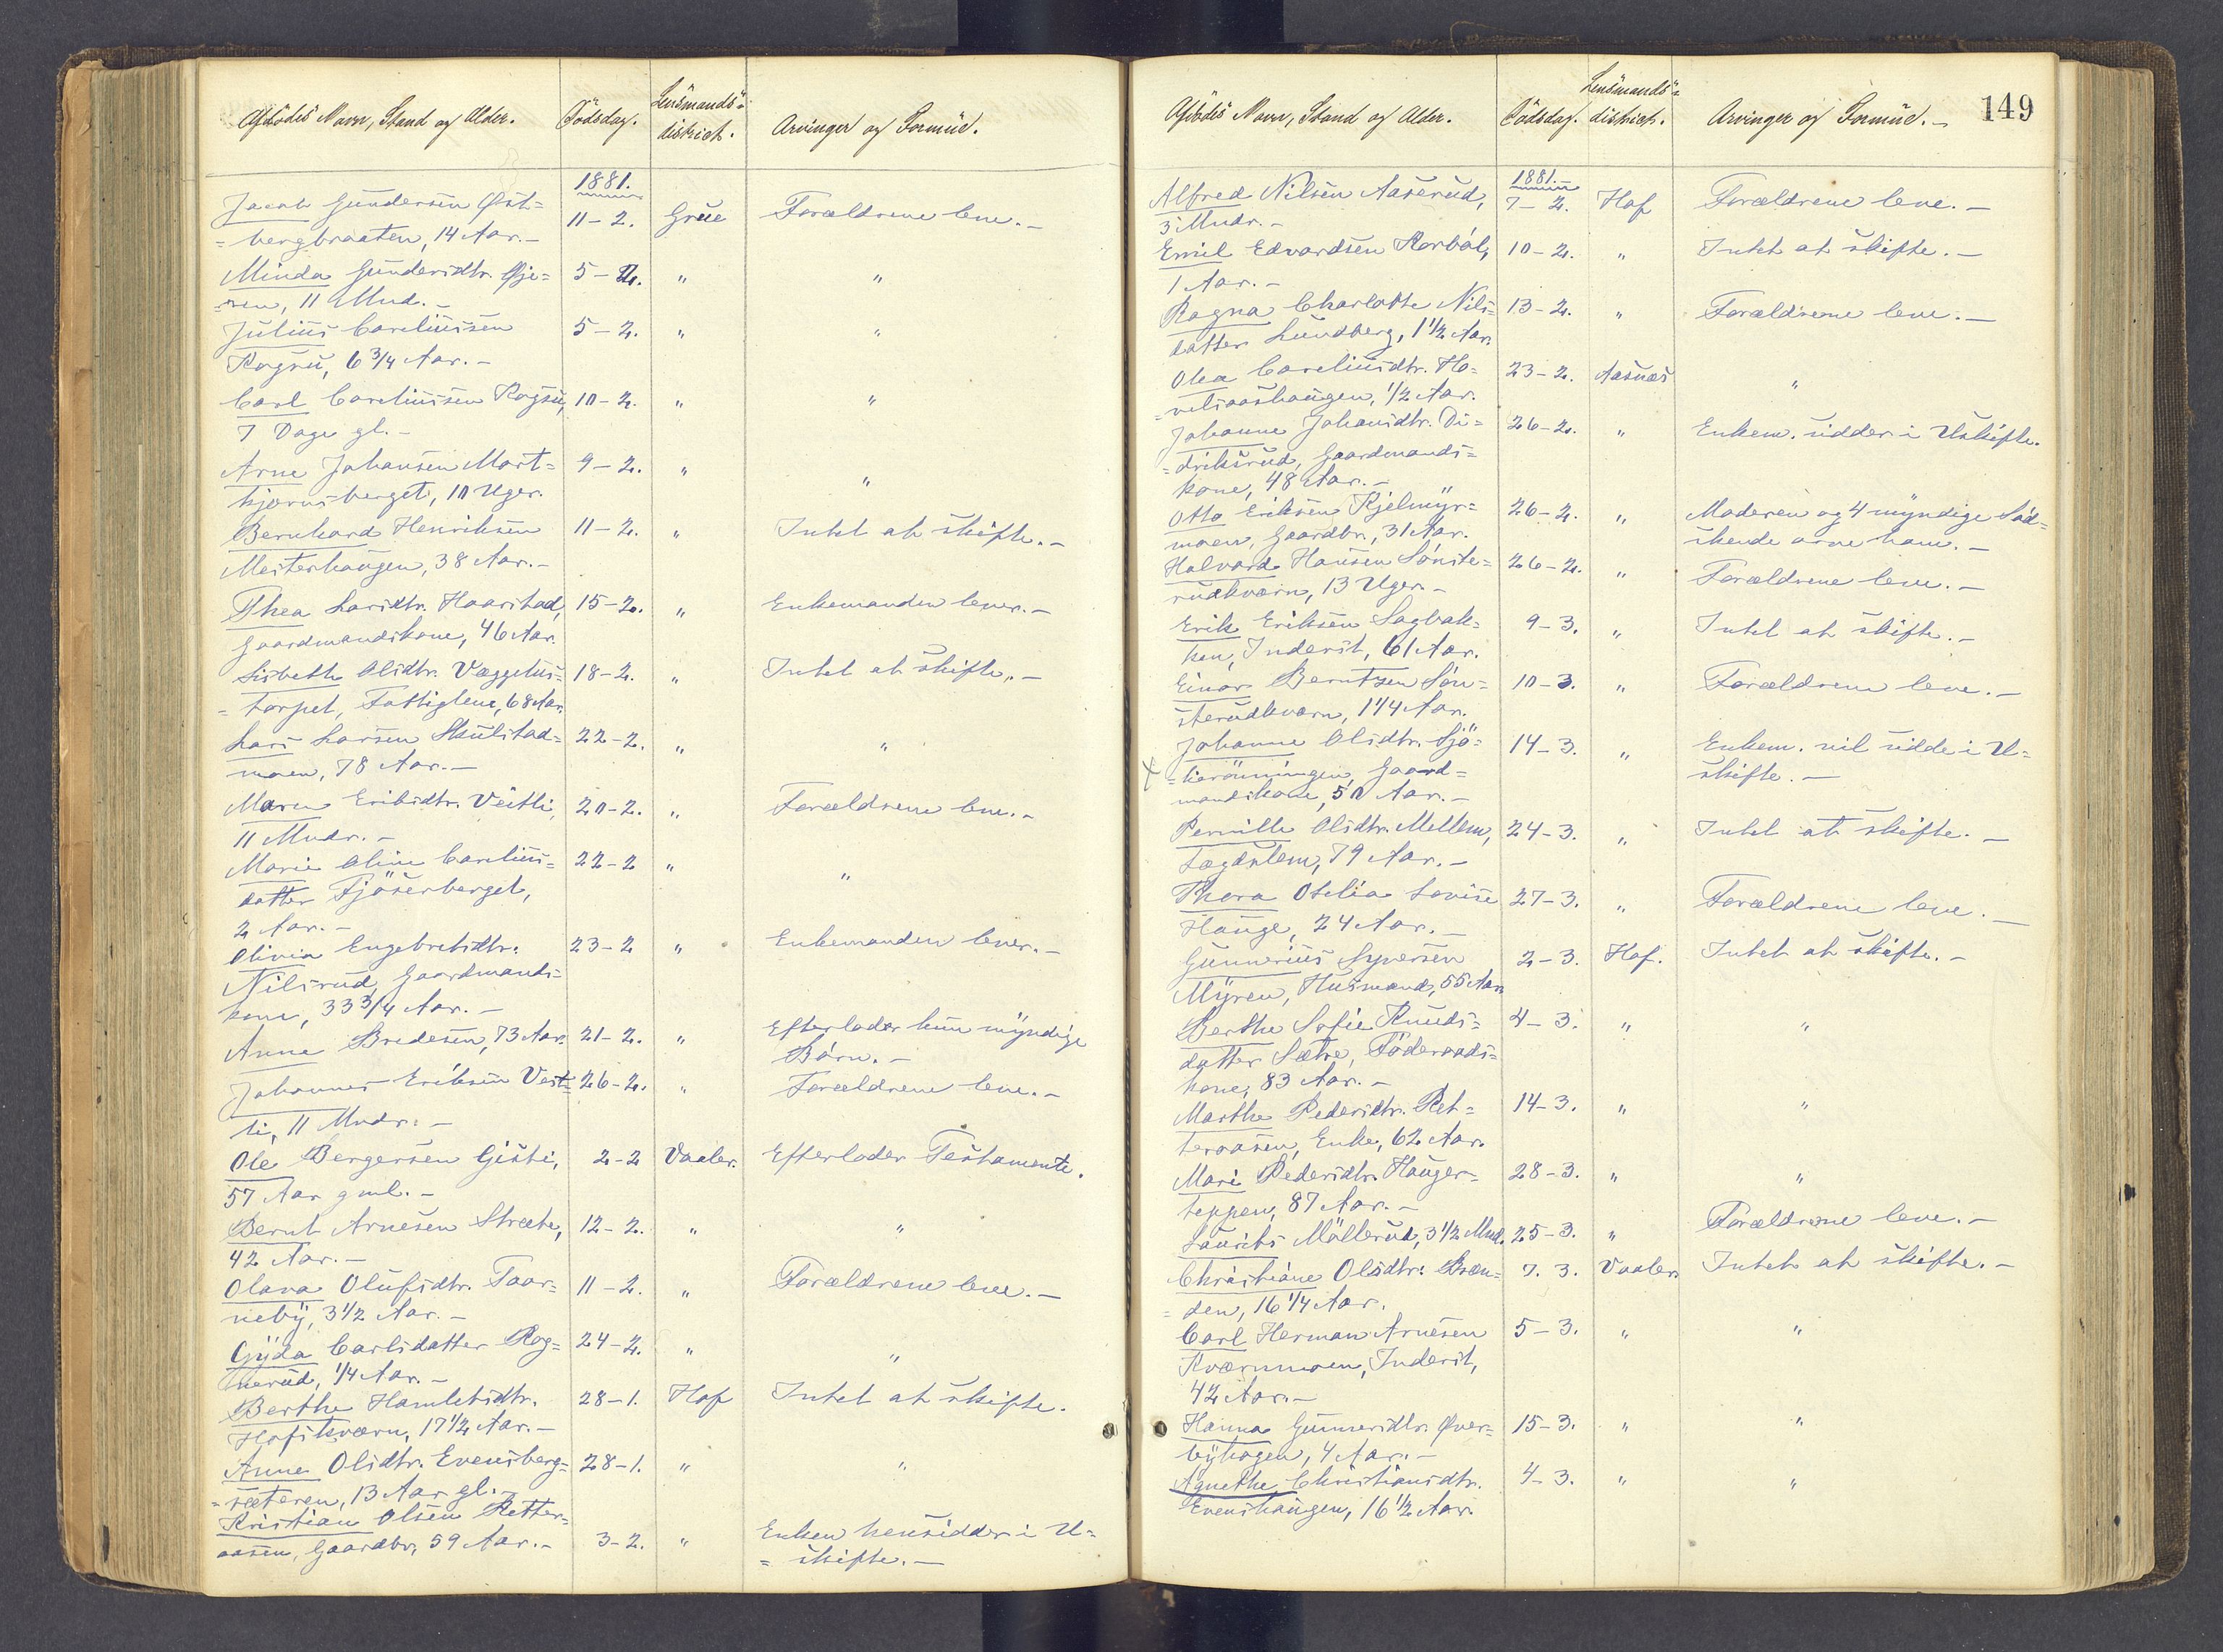 Afdödes Navn, Stand og Alder. Dödsdag. Lensmands-
district. Arvinger og Formue.
1881.
Jacob Gundersen Øst=
=bergbraaten, 14 Aar.- 11-2. Grue Forældrene leve.-
Minda Gundersdtr. Øje=
=ren, 11 Mnd.- 5-2. " "
Julius Careliussen 5-2. " "
Rogsu, 6 3/4 Aar.-
Carl Careliussen Rogsu, 10-2. " "
7 Dage gl.-
Arne Johansen Mort= 9-2. " "
kjernsberget, 10 Uger.
Bernhard Henriksen 11-2. " Intet at skifte.-
Mesterhaugen, 38 Aar.-
Thea Larsdtr. Haarstad, 15-2. " Enkemanden lever.-
Gaardmandskone, 46 Aar.
Lisbeth Olsdtr. Væggetus= 18-2. " Intet at skifte.-
=torpet, Fattiglem, 68 Aar.
Lars Larsen Skulstad= 22-2. " "
moen, 78 Aar.-
Maren Eriksdtr. Vestli, 20-2. " Forældrene leve.-
11 Mndr.-
Marie Oline Carelius= 22-2 " "
datter Fjöserberget,
2 Aar.-
Olivia Engebretsdtr. 23-2 " Enkemanden lever.-
Nilsrud, Gaardmands=
kone, 33 3/4 Aar.-
Anne Bredesen, 73 Aar. 21-2. " Efterlader kun myndige
Börn.-
Johannes Eriksen Vest= 26-2. " Forældrene leve.-
li, 11 Mndr.-
Ole Bergersen Gjesti, 2-2 Vaaler. Efterlader Testamente.
57 Aar gml.-
Bernt Arnesen Stræte, 12-2. " "
42 Aar.-
Olava Olufsdtr. Taar= 11-2. " Forældrene leve.-
neby, 3 1/2 Aar.-
Gyda Carlsdatter Rog= 24-2. " "
nerud, 1/4 Aar.-
Berthe Hamletsdtr. 28-1. Hof Intet at skifte.
Hofskværn, 17 1/2 Aar.-
Anne Olsdtr. Evensberg= 28-1. " "
=sæteren, 13 Aar gl.-
Kristian Olsen Retter=
aasen, Gaardbr, 59 Aar.- 3-2. " Enken hensidder i U=
=skifte.-
149
Afdödes Navn, Stand og Alder. Dödsdag. Lensmands-
district. Arvinger og Formue.-
1881.
Alfred Nilsen Aaserud, 7-2. Hof Forældrene leve.-
3 Mndr.-
Emil Edvardsen Korböl, 10-2. " Intet at skifte.-
1 Aar.-
Ragna Charlotte Nils= 13-2. " Forældrene leve.-
datter Lundberg, 1 1/2 Aar.
Olea Careliusdtr. Ho= 23-2. Aasnæs "
=velsaashaugen, 1/2 Aar.
Johanne Johansdtr. Di= 26-2. " Enkem. sidder i Uskifte.
=driksrud, Gaardmands=
kone, 48 Aar.-
Otto Eriksen Kjelmyr= 26-2. " Moderen og 4 myndige Söd=
moen, Gaardbr., 31 Aar. skende arve ham.-
Halvard Hansen Sönste= 26-2. " Forældrene leve.-
rudkværn, 13 Uger.-
Erik Eriksen Sagbak= 9-3. " Intet at skifte.-
ken, Inderst, 61 Aar.
Einar Berntsen Sön= 10-3. " Forældrene leve.-
sterudkværn, 1 1/4 Aar.
Johanne Olsdtr. Sjö= 14-3. " Enkem. vil sidde i U=
=lierönningen, Gaard= skifte.-
mandskone, 50 Aar.-
Pernille Olsdtr. Mellem, 24-3. " Intet at skifte.-
Lægdslem, 79 Aar.-
Thora Otelia Lovise 27-3. " Forældrene leve.-
Hauge, 24 Aar.-
Gunnerius Syversen 2-3. Hof. Intet at skifte.-
Myren, Husmand, 55 Aar.
Berthe Sofie Knuds= 4-3. " "
datter Sætre, Föderaads=
kone, 83 Aar.-
Marthe Pedersdtr. Ret= 14-3. " "
teraasen, Enke, 62 Aar.
Mari Pedersdtr. Hauger= 28-3. " "
teppen, 87 Aar.-
Laurits Möllerud, 3 1/2 Mnd. 25-3. " Forældrene leve.-
Christiane Olsdtr. Bræn= 7.3. Vaaler. Intet at skifte.-
=den, 16 1/4 Aar.
Carl Herman Arnesen 5-3. " "
Kværnmoen, Inderst,
42 Aar.-
Hanna Gunnersdtr. Øver= 15-3. " "
byhagen, 4 Aar.-
Agnethe Christiansdtr. 4-3. " "
Evenshaugen, 16 1/2 Aar.